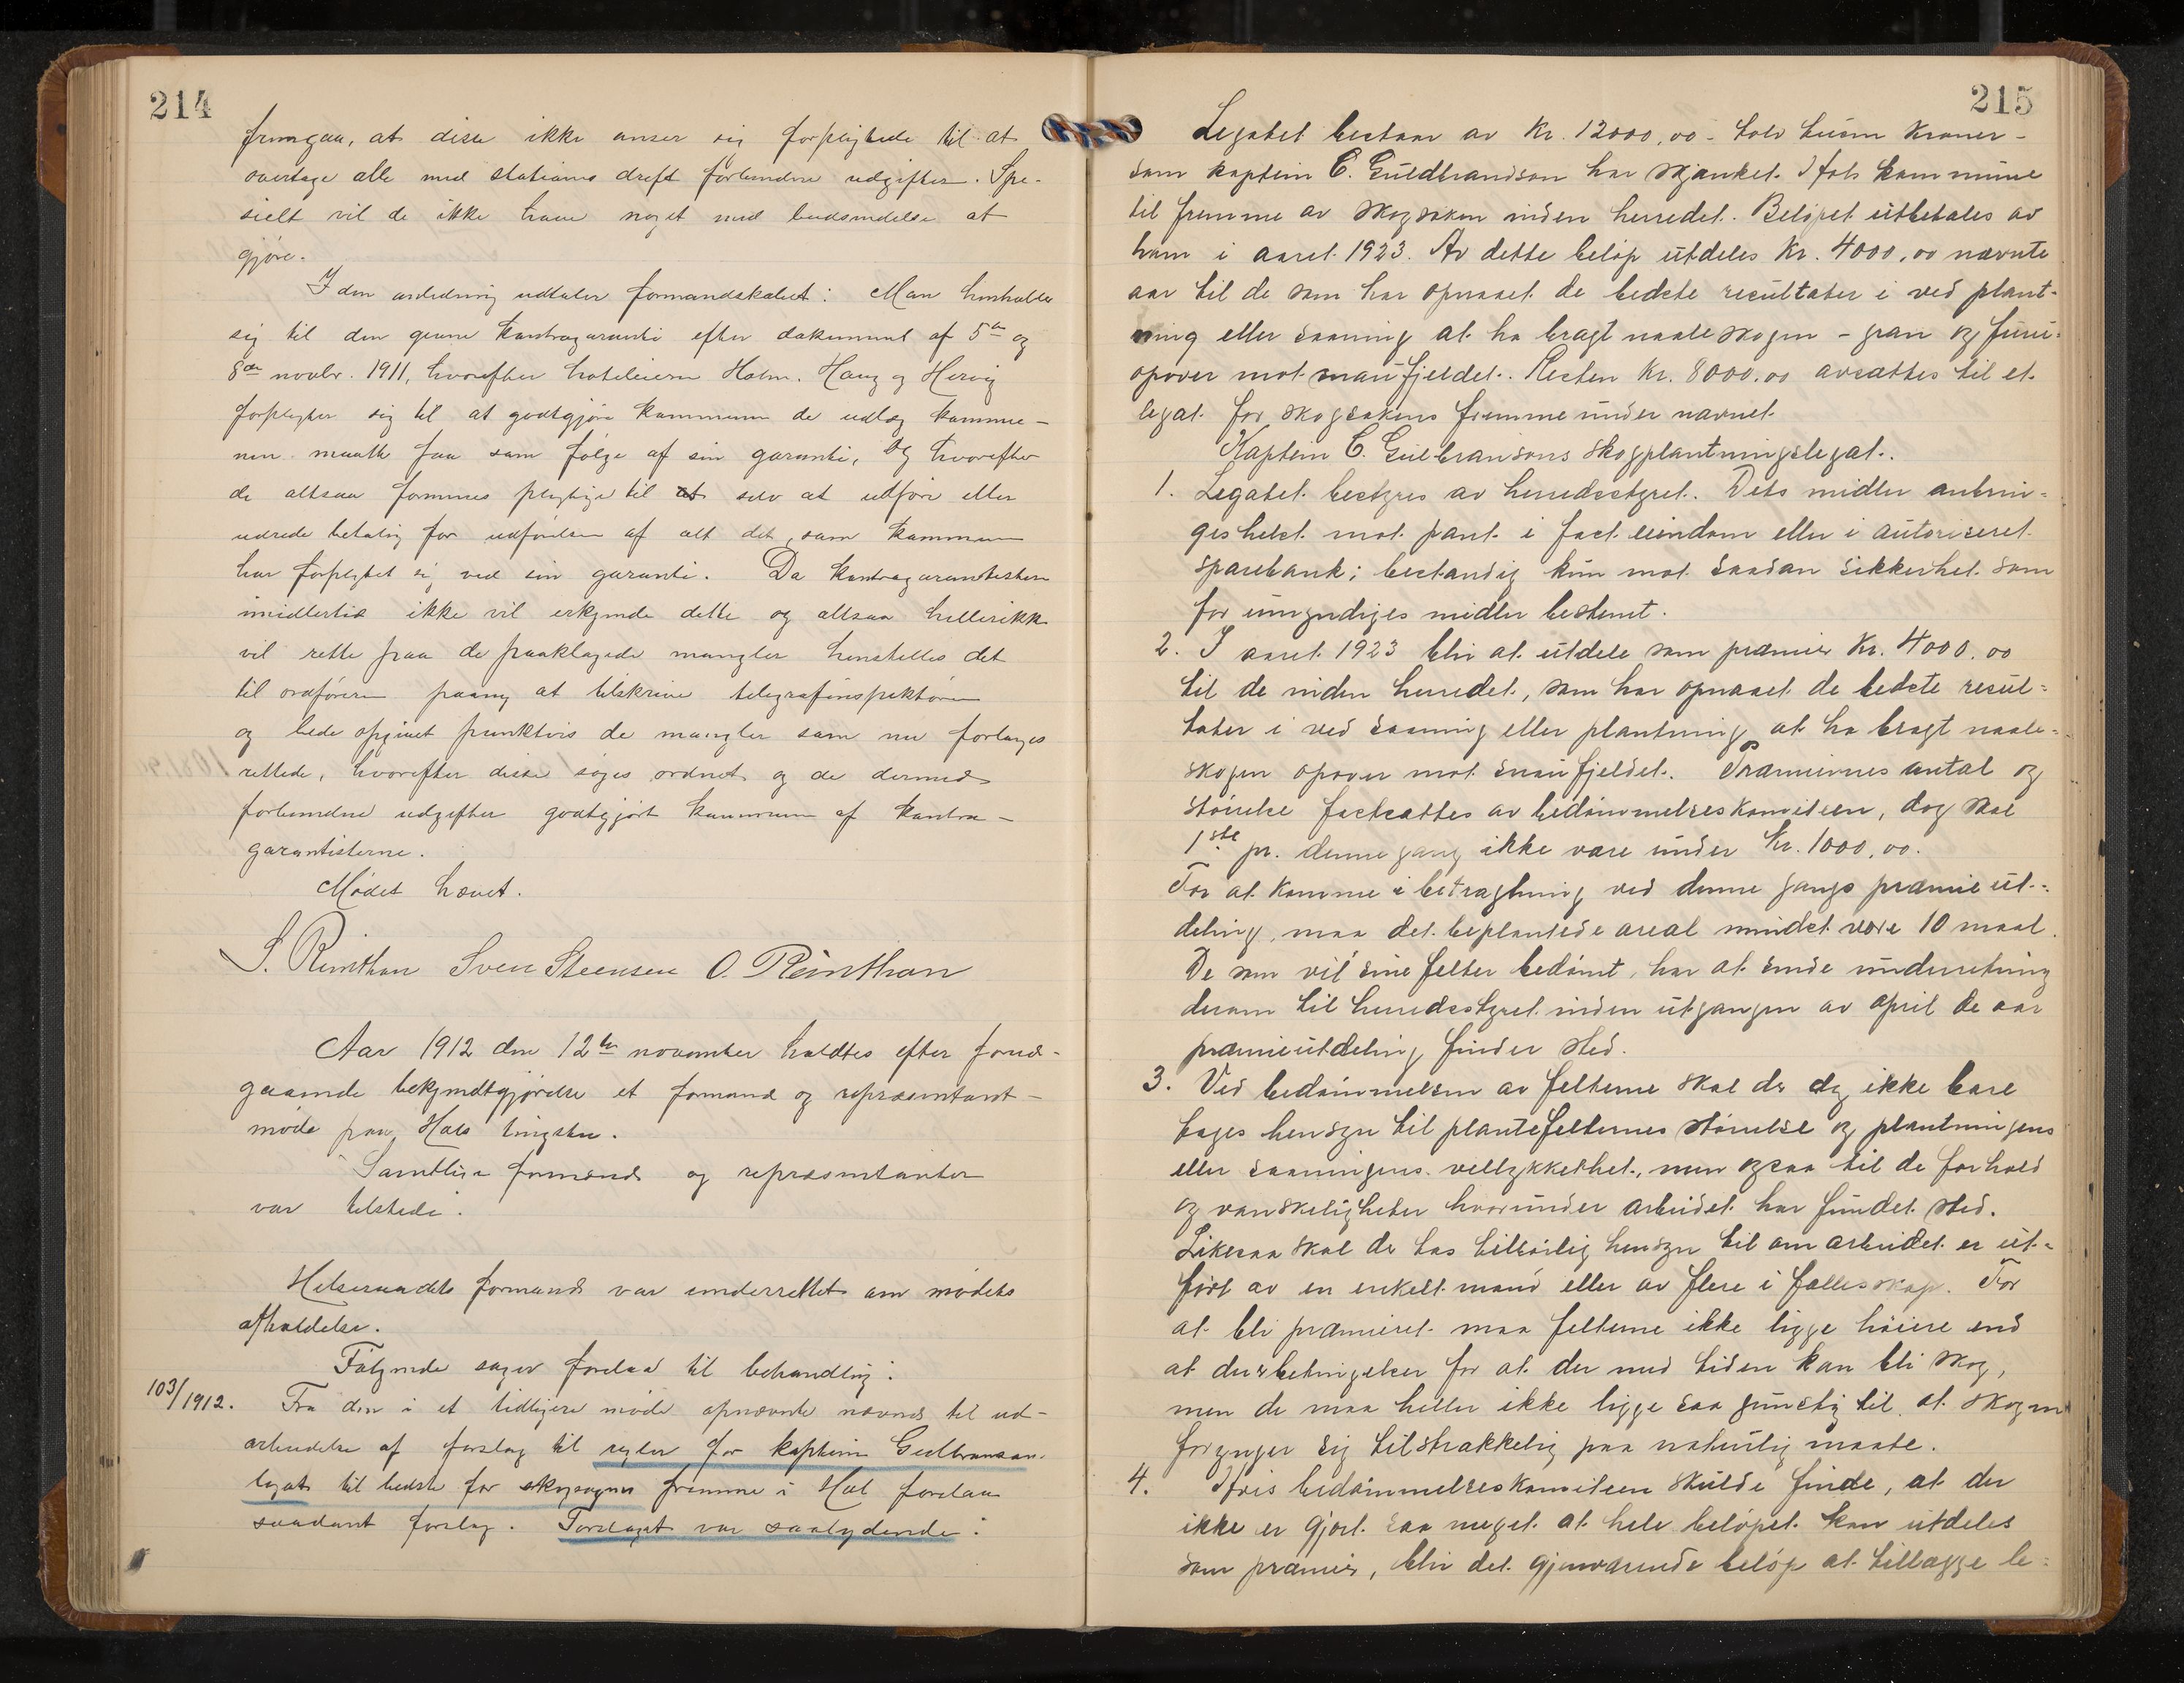 214
fremgaa, at disse ikke anser sig forpligtede til at
overtage alle med stationens drift forbundne udgifter. Spe-
sielt vil de ikke have noget med budsendelse at
gjøre.
I den anledning udtaler formandskabet: Man henholder
sig til den givne kontragaranti efter dokument af 5te og
8de novbr. 1911, hvorefter hoteleierne Holm, Haug og Hervig
forpligter sig til at godtgjøre kommunen de udlæg kommu-
nen maatte faa som følge af sin garanti, og hvorefter
de altsaa formenes pligtige til at selv at udføre eller
udrede betaling for udførelsen af alt det, som kommunen
har forpligtet sig ved sin garanti. Da kontragarantisterne
imidlertid ikke vil erkjende dette og altsaa hellerikke
vil rette paa de paaklagede mangler henstilles det
til ordføreren paany at tilskrive telegrafinspektøren
og bede opgivet punktvis de mangler som nu forlanges
rettede, hvorefter disse søges ordnet og de dermed
forbundne udgifter godtgjørt kommunen af kontra-
garantisterne.
Mødet hævet.
S. Reinthon Sven Steensen O. Reinthon
Aar 1912 den 12te november holdtes efter forud-
gaaende bekjendtgjørelse et formand og repræsentant-
møde paa Hols tingstue.
Samtlige formænd og repræsentanter
var tilstede.
Helseraadets formand var underrettet om mødets
afholdelse.
Følgende sager forelaa til behandling:
103/1912. Fra den i et tidligere møde opnævnte nævnd til ud-
arbeidelse af forslag til regler for kaptein Gulbransons
legat til bedste for skogsagens fremme i Hol forelaa
saadant forslag. Forslaget var saalydende:
215
Legatet bestaar av Kr. 12000,00 - tolv tusen Kroner -
som kaptein C. Guldbrandson har skjænket Hols kommune
til fremme av skogsaken inden herredet. Beløpet utbetales av
ham i aaret 1923. Av dette beløp utdeles Kr. 4000,00 nævnte
aar til de som har opnaaet de bedste resultater i ved plant-
ning eller saaning at ha bragt naaleskogen - gran og furu -
opover mot snaufjeldet. Resten Kr. 8000,00 avsættes til et
legat for skogsakens fremme under navnet
Kaptein C. Gulbransons skogplantningslegat.
1. Legatet bestyres av herredsstyret. Dets midler anbrin-
ges helst mot pant i fast eiendom eller i autoriseret
sparebank; bestandig kun mot saadan sikkerhet som
for umyndiges midler bestemt.
2. I aaret 1923 blir at utdele som præmier Kr. 4000,00
til de inden herredet, som har opnaaet de bedste resul-
tater i ved saaning eller plantning at ha bragt naale-
skogen opover mot snaufjeldet. Præmiernes antal og
størrelse fastsættes av bedømmelseskomiteen, dog skal
1ste pr. denne gang ikke være under Kr. 1000,00.
For at komme i betragtning ved denne gangs præmieut-
deling, maa det beplantede areal mindst være 10 maal.
De som vil sine felter bedømt, har at sende underretning
derom til herredsstyret inden utgangen av april de aar
præmieutdeling finder sted.
3. Ved bedømmelsen av felterne skal der dog ikke bare
tages hensyn til plantefelternes størrelse og plantningens
eller saaningens vellykkethet, men ogsaa til de forhold
og vanskeligheter hvorunder arbeidet har fundet sted.
Likesaa skal der tas tilbørlig hensyn til om arbeidet er ut-
ført av en enkelt mand eller av flere i fællesskap. For
at bli præmieret maa felterne ikke ligge høiere end
at der er betingelser for at der med tiden kan bli skog,
men de maa heller ikke ligge saa gunstig til at skogen
forynger sig tilstrækkelig paa naturlig maate.
4. Hvis bedømmelseskomiteen skulde finde, at der
ikke er gjort saa meget at hele beløpet kan utdeles
som præmier, blir det gjenværende beløp at tillægge le-